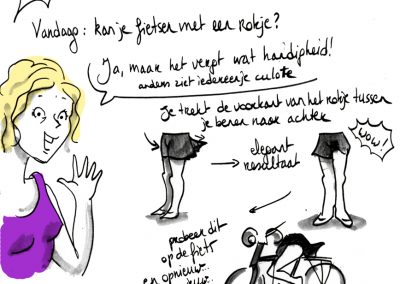 Vandaag: kan je fietsen met een rokje?
Ja, maar het vergt wat handigheid!
anders ziet iedereen je culotte
Je trekt de voorkant van het rokje tussen
je benen naar achter
WOW!
elegant
resultaat
probeer dit
op de fiets
en opnieuw...